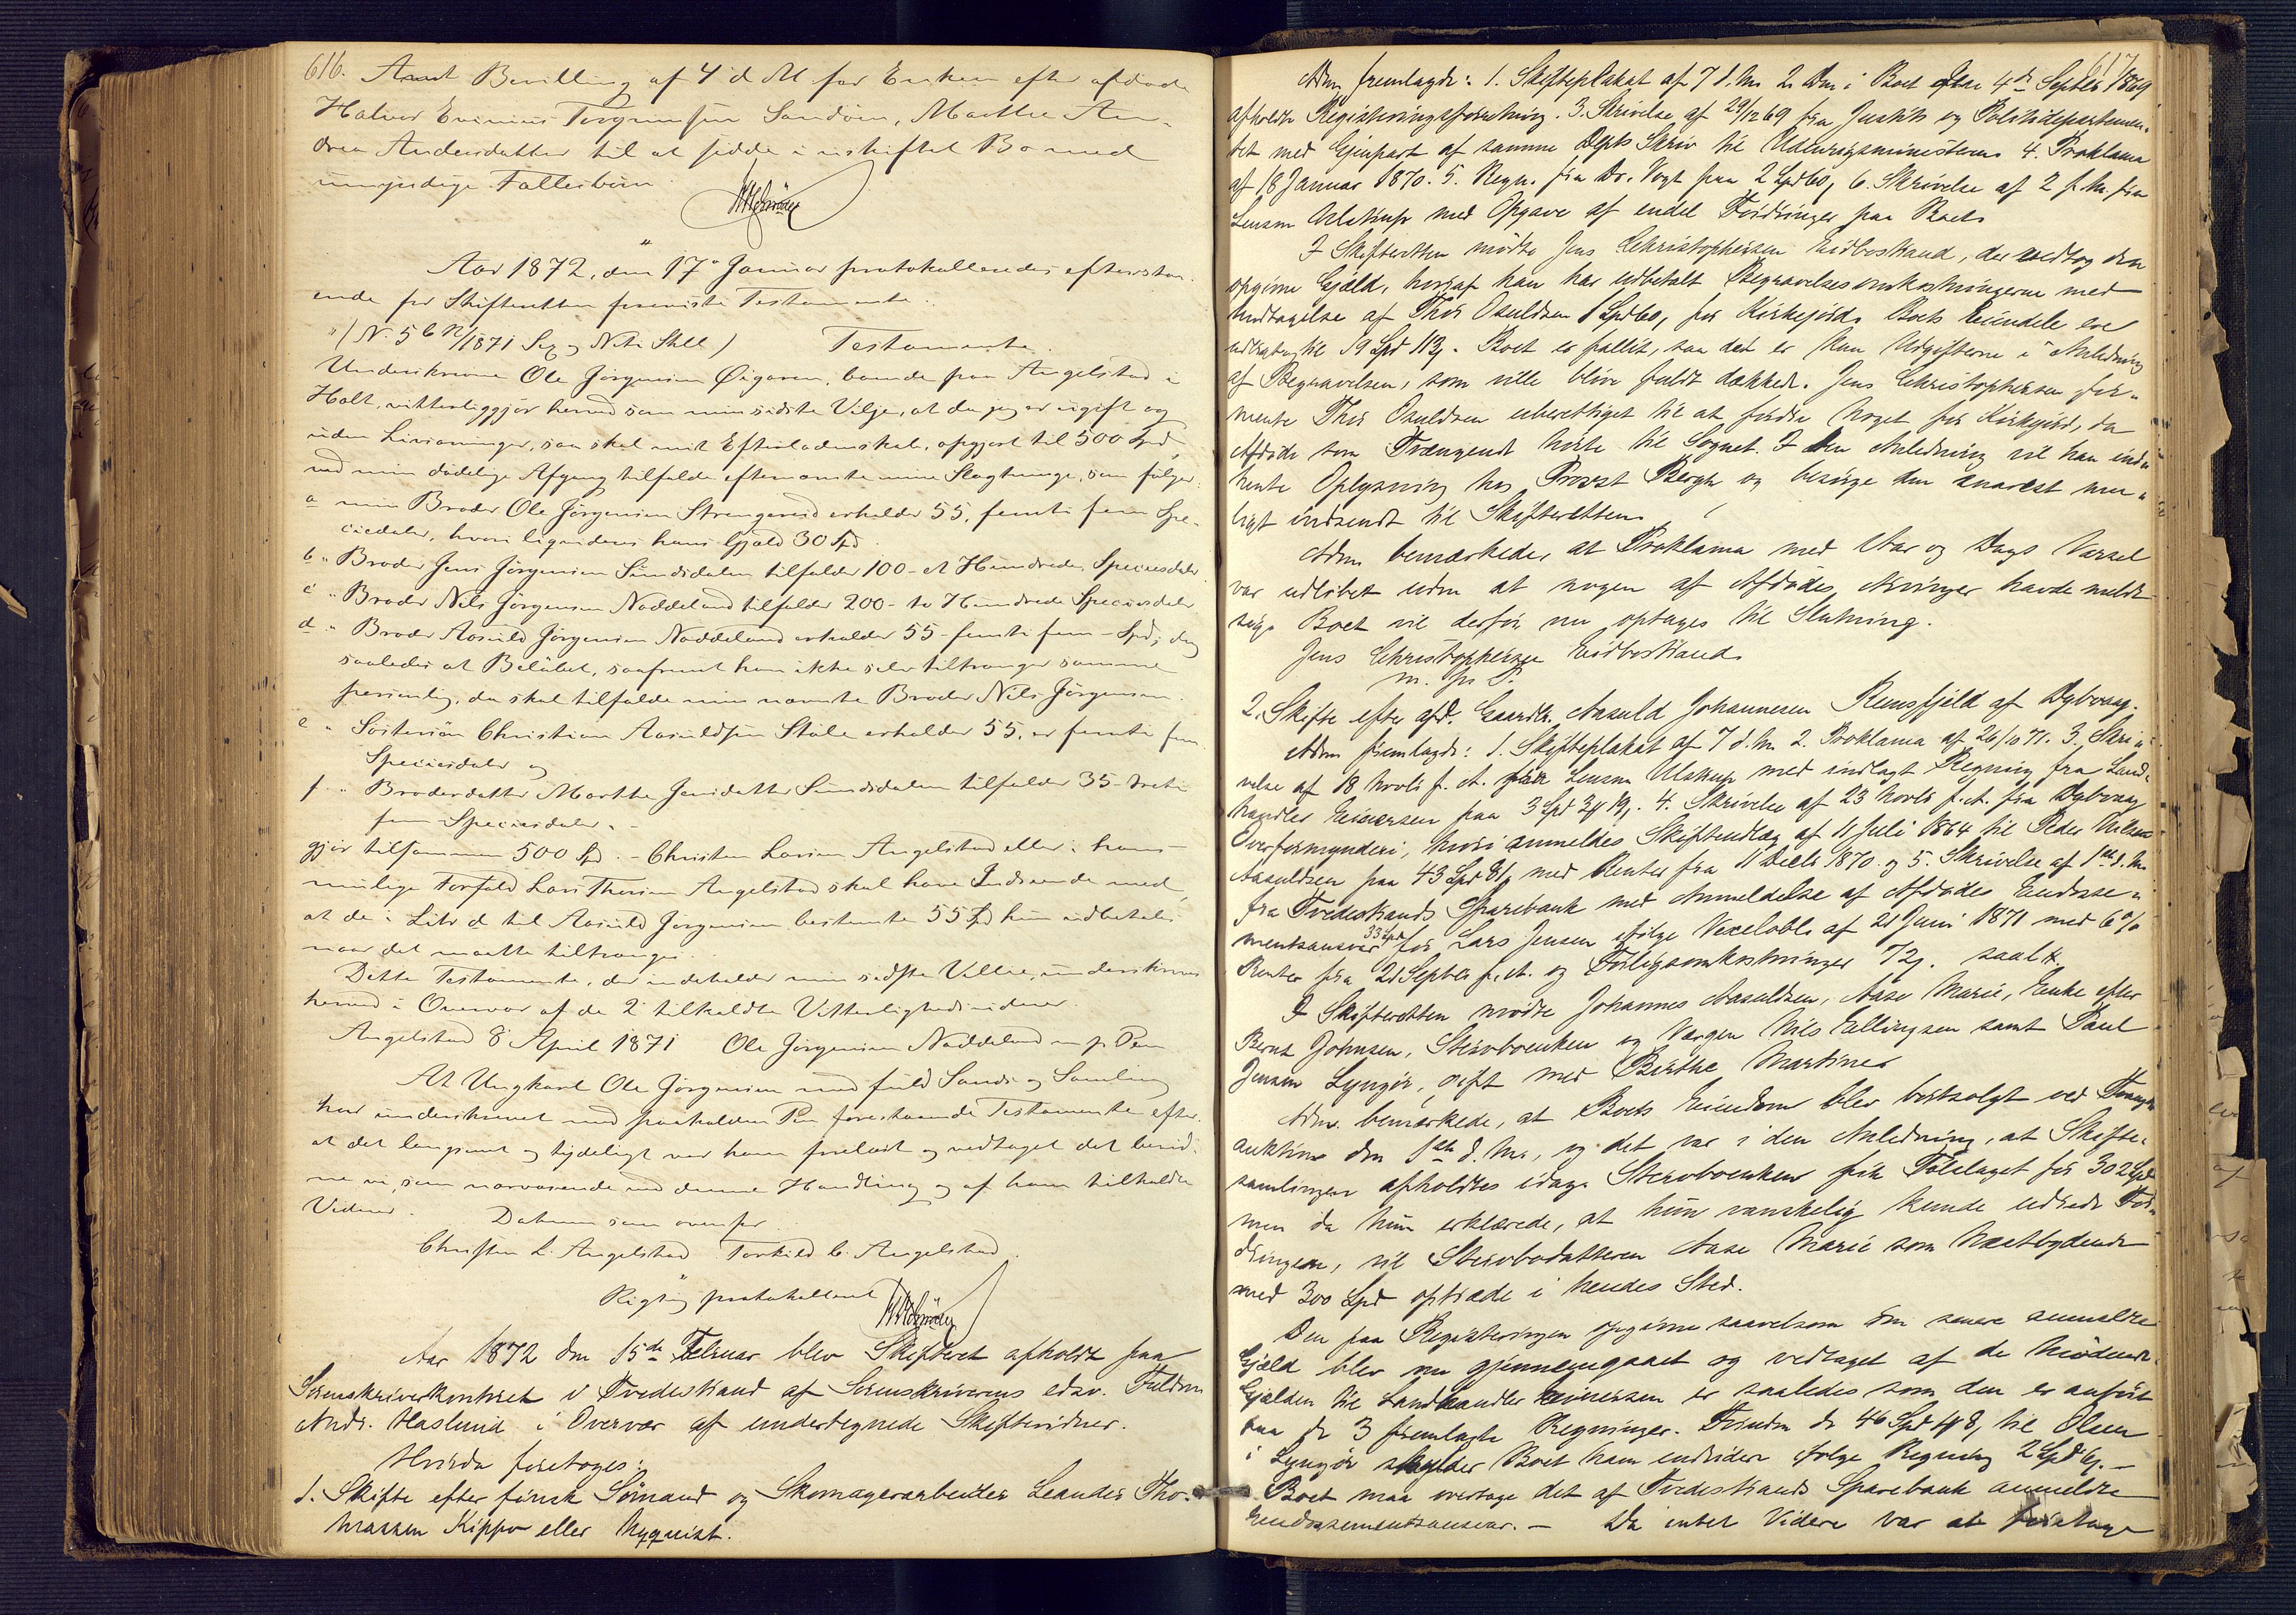 616.
Amt Bevilling af 4 d M for Enken efter afdøde
Halvor Evinius Torgrimsen Sandøen, Marthe An-
drea Andersdatter til at sidde i uskiftet Bo med
umyndige Fællesbørn
Aar 1872, den 17de Januar protokolleredes efterstaa-
ende for Skifteretten foreviste Testamente.
Testamente.
Underskrevne Ole Jørgensen Øigaren, boende paa Angelstad i
Holt, vitterliggjør herved som min sidste Vilje, at da jeg er ugift og
uden Livsarvinger, saa skal mit Efterladenskab, opgjort til 500 Spd,
ved min dødelige Afgang tilfalde efternævnte mine Slægtninge, som følger:
a min Broder Ole Jørgensen Strengereid erholder 55, femti fem Spe-
ciedaler, hvori liqvideres hans Gjæld 30 Spd.
b " Broder Jens Jørgensen Sundsdalen tilfalder 100 - et Hundrede, Speciesdaler
c " Broder Nils Jørgensen Noddeland tilfalder 200 - to Hundrede Speciesdaler
d " Broder Aasuld Jørgensen Noddeland erholder 55 - femti fem - Spd; dog
saaledes at Beløbet, saafremt han ikke selv tiltrænger samme
personlig, da skal tilfalde min nævnte Broder Nils Jørgensen.
e " Søstersøn Christian Aasuldsen Støle erholder 55, er femti fem
Speciesdaler og
f " Broderdatter Marthe Jensdatter Sundsdalen tilfalder 35 - treti
fem Speciesdaler. -
gjør tilsammen 500 Spd. - Christen Larsen Angelstad eller i hans
mulige Forfald Lars Thorsen Angelstad skal have Indseende med,
at de i Litr d til Aasuld Jørgensen bestemte 55 Spd kun udbetales
naar det maatte tiltrænges.
Dette Testamente, der indeholder min sidste Villie, underskrives
herved i Overvær af de 2 tilkaldte Vitterlighedsvidner.
Angelstad 8 April 1871 Ole Jørgensen Noddeland m. p. Pen
At Ungkarl Ole Jørgensen med fuld Sands og Samling
har underskrevet med paaholden Pen forestaaende Testamente efter
at det langsomt og tydeligt var ham forelæst og vedtaget det bevid-
ne vi, som nærværende ved denne Handling og af ham tilkaldte
Vidner. Datum som ovenfor.
Christen L. Angelstad Torkild C. Angelstad.
Rigtig protokolleret
Aar 1872 den 15de Februar blev Skifteret afholdt paa
Sorenskriverkontoret i Tvedestrand af Sorenskriverens edsv. Fuldm
Andr. Haslund i Overvær af undertegnede Skiftevidner.
Hvorda foretoges:
1. Skifte efter finsk Sømand og Skomagerarbeider Leander Tho-
massen Kippo eller Nyqvist.
617
Adm. fremlagde: 1. Skifteplakat af 7 d. M. 2. Den i Boet efter 4de Septbr 1869
afholdte Registreringsforretning. 3. Skrivelse af 29/12 69 fra Justits og Politidepartemen-
tet med Gjenpart af samme Depts Skriv til Udenrigsministeren 4. Proklama
af 18 Januar 1870. 5. Regn. fra Dr. Vogt paa 2 Spd 60, 6. Skrivelse af 2 f. M. fra
Lensm Ulstrup med Opgave af endel Fordringer paa Boet.
I Skifteretten mødte Jens Christophersen Eidbostrand, der vedtog den
opgivne Gjæld, hvoraf han har udbetalt Begravelsesomkostningerne med
Undtagelse af Thor Osuldsen 1 Spd 60, for Kirkejord. Boets Eiendele ere
udbragte til 19 Spd 113. Boet er fallit, saa det er kun Udgifterne i Anledning
af Begravelsen, som ville blive fuldt dækkede. Jens Christophersen for-
mente Thor Osuldsen uberettiget til at fordre noget for Kirkejord, da
Afdøde som Trængende hørte til Sognet. I den Anledning vil han ind-
hente Oplysning hos Provst Bergh og besørge den snarest mu-
ligt indsendt til Skifteretten.
Adm. bemærkede, at Proklama med Aar og Dags Varsel
var udløbet uden at nogen af Afdødes Arvinger havde meldt
sig. Boet vil derfor nu optages til Slutning.
Jens Christophersen Eidbostrand.
m. p. P.
2. Skifte efter afd. Gaardbr. Aasuld Johannesen Remsfjeld af Dybvaag.
Adm. fremlagde: 1. Skifteplakat af 7 d. M. 2. Proklama af 26/10 71. 3. Skri-
velse af 18 Novbr f. A. fra Lensm Ulstrup med indlagt Regning fra Land-
handler Einersen paa 3 Spd 34 19. 4. Skrivelse af 23 Novbr f. A. fra Dybvaag
Overformynderi, hvori anmeldes Skifteudlæg af 11 Juli 1864 til Peder Nilsen
Aasuldsen paa 43 Spd med Renter fra 11 Decbr 1870. og 5. Skrivelse af 1ste d. M.
fra Tvedestrands Sparebank med Anmeldelse af Afdødes Endosse-
mentsansvar 33 Spd for Lars Jensen ifølge Vexelobl. af 21 Juni 1871 med 6 %
Renter fra 21 Septbr f. A. og Forligsomkostninger 72. saalt.
I Skifteretten mødte Johannes Aasuldsen, Aase Marie, Enke efter
Bernt Johnsen, Stervboenken og Værgen Nils Ellingsen samt Paul
Jensen Lyngør, gift med Birthe Martine.
Adm. bemærkede, at Boets Eiendom blev bortsolgt ved Tvangs-
auktion den 1ste d. M., og det var i den Anledning, at Skifte-
samlingen afholdtes idag. Stervboenken fik Tilslaget for 302 Spd
men da hun erklærede, at hun vanskelig kunde udrede For-
dringen, vil Stervbodatteren Aase Marie som Næstbydende
med 300 Spd optræde i hendes Sted.
Den paa Registreringen opgivne saavelsom den senere anmeldte
Gjæld blev nu gjennemgaaet og vedtaget af de Mødende.
Gjælden til Landhandler Einersen er saaledes som den er anført
paa de 3 fremlagte Regninger. Foruden de 46 Spd 48, til Olsen
i Lyngør skylder Boet ham endvidere ifølge Regning 2 Spd. -
Boet maa overtage det af Tvedestrands Sparebank anmeldte
Endossementsansvar. - Da intet Videre var at foretage